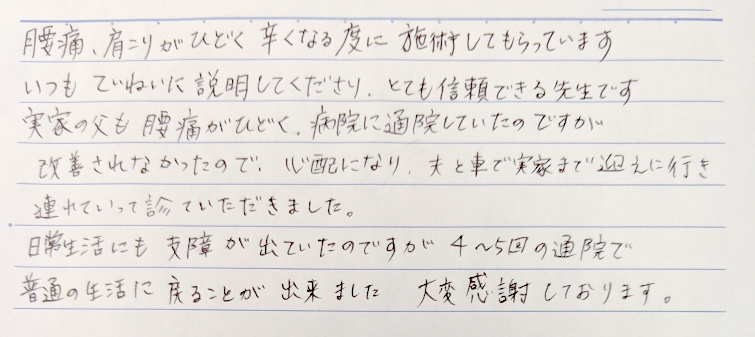 腰痛、肩こりがひどく 辛くなる度に 施術してもらっています
いつも ていねいに説明してくださり、とても信頼できる先生です
実家の父も 腰痛がひどく、病院に通院していたのですが
改善されなかったので、心配になり、夫と車で実家まで迎えに行き
連れていって診ていただきました。
日常生活にも 支障が出ていたのですが 4〜5回の通院で
普通の生活に 戻ることが 出来ました 大変感謝しております。